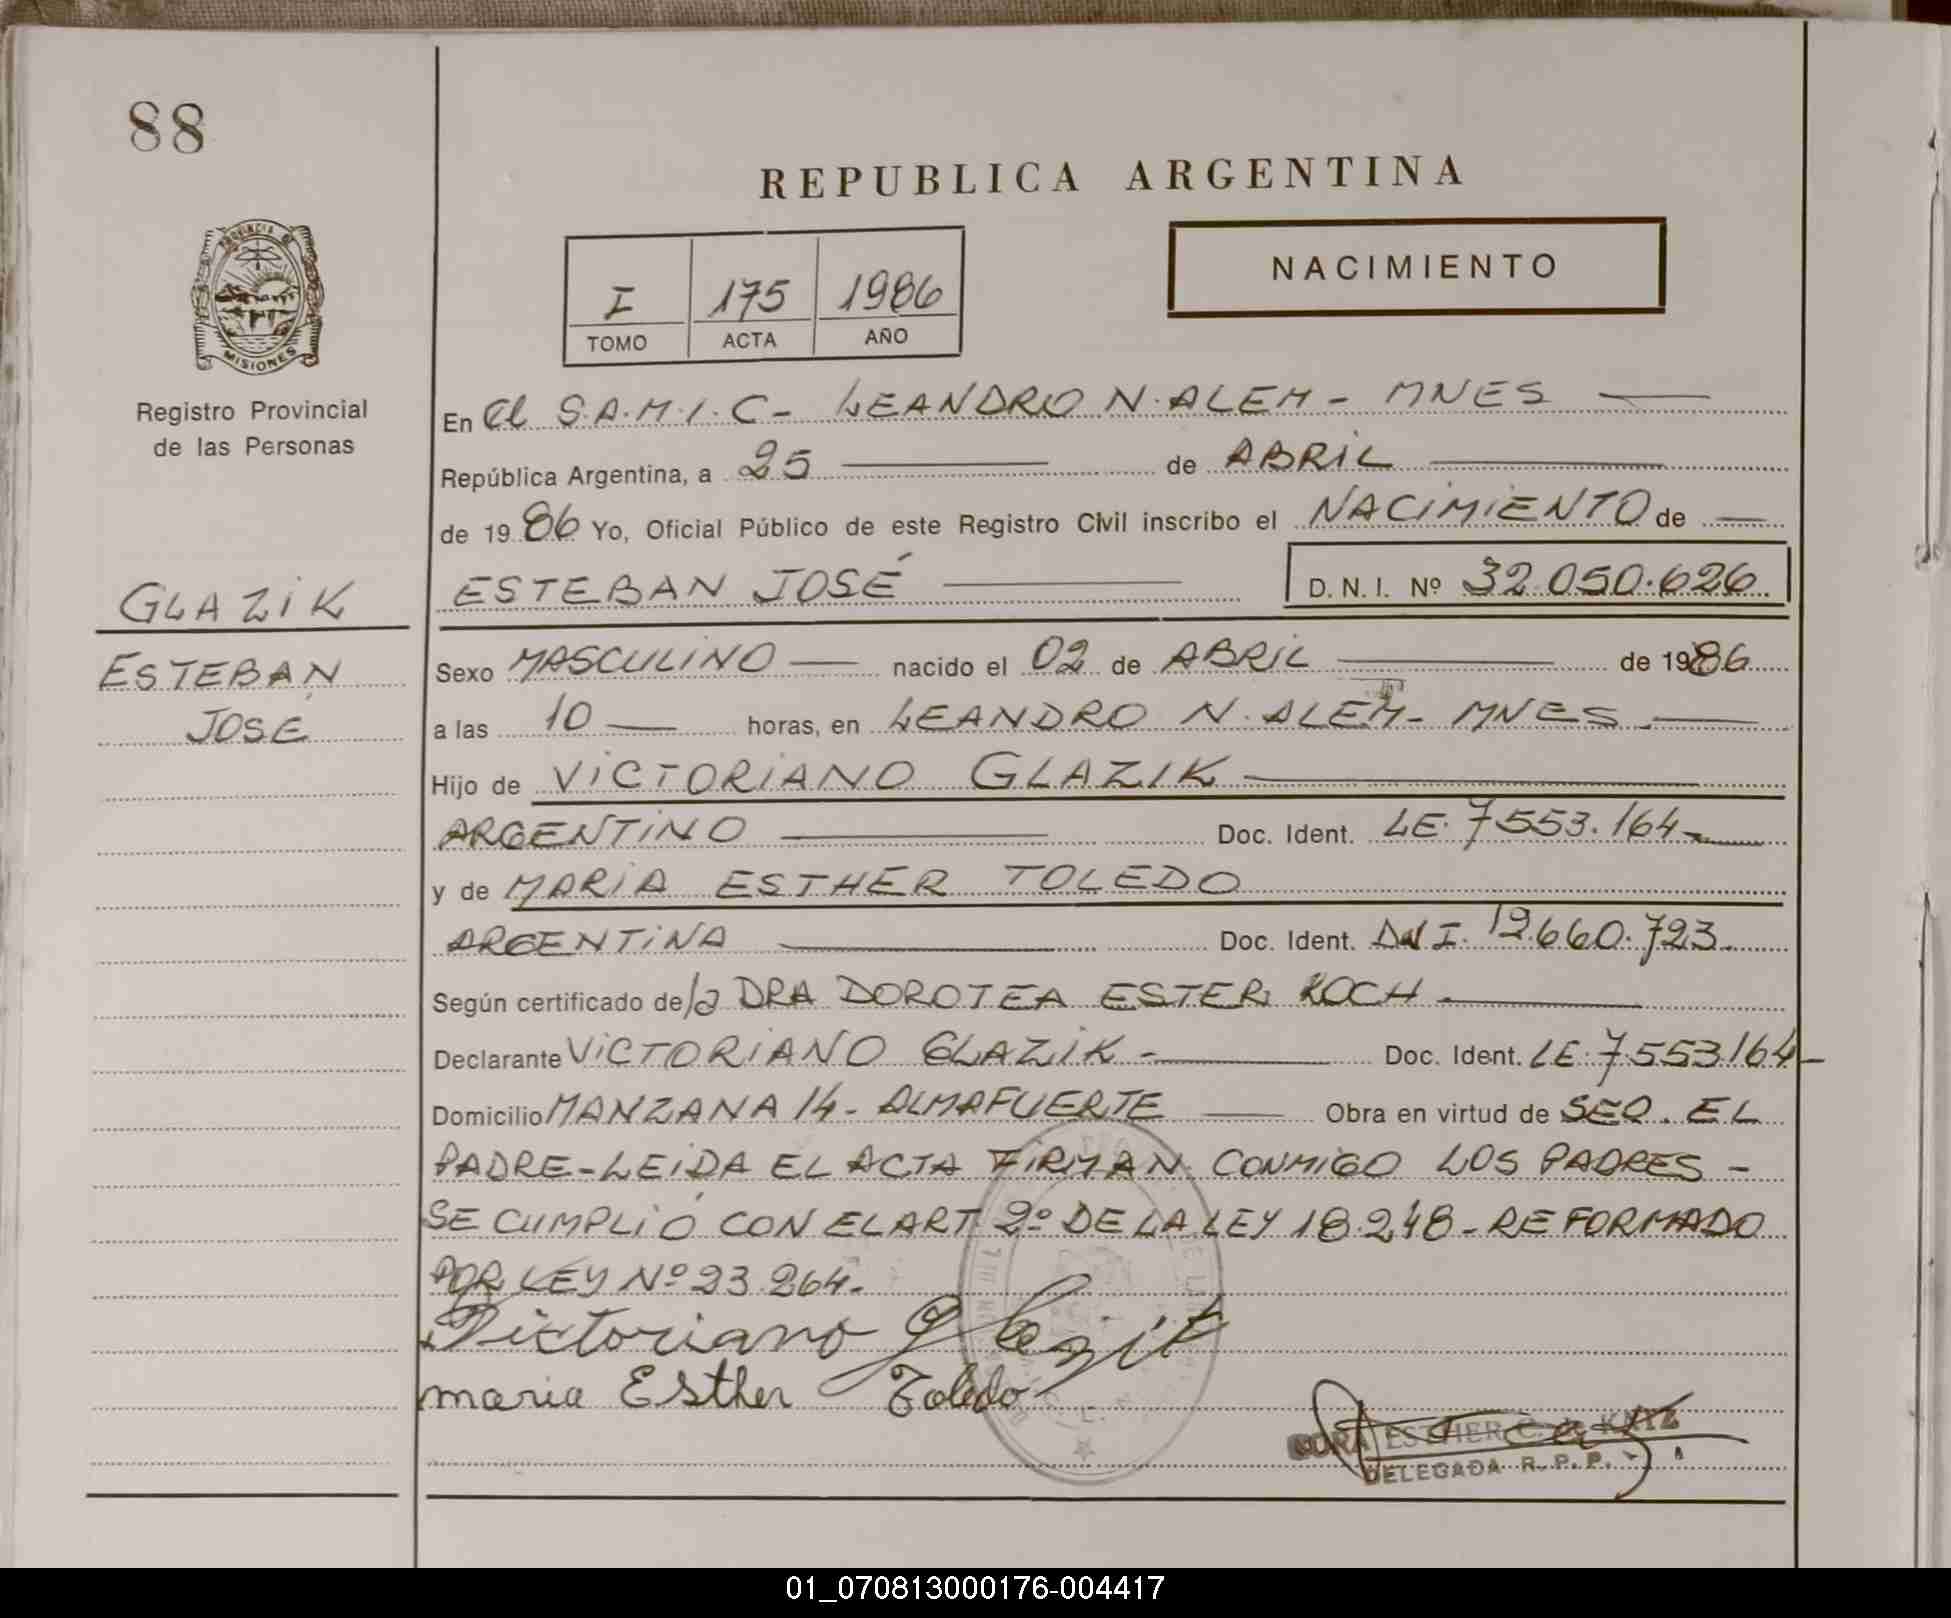 88
REPUBLICA ARGENTINA
NACIMIENTO
I 175 1986
TOMO ACTA AÑO
PROVINCIA DE
MISIONES
Registro Provincial
de las Personas
GLAZIK
ESTEBAN
JOSE
En el S.A.M.I.C- LEANDRO N. ALEM - MNES
República Argentina, a 25 de ABRIL
de 1986 Yo, Oficial Público de este Registro Civil inscribo el NACIMIENTO de
ESTEBAN JOSÉ D. N. I. Nº 32.050.626
Sexo MASCULINO nacido el 02 de ABRIL de 1986
a las 10 horas, en LEANDRO N. ALEM - MNES
Hijo de VICTORIANO GLAZIK
ARGENTINO Doc. Ident. LE. 7553.164
y de MARIA ESTHER TOLEDO
ARGENTINA Doc. Ident. DNI. 12.660.723
Según certificado de la DRA DOROTEA ESTER KOCH
Declarante VICTORIANO GLAZIK - Doc. Ident. LE. 7.553.164
Domicilio MANZANA 14 - ALMAFUERTE Obra en virtud de SER EL
PADRE - LEIDA EL ACTA FIRMAN CONMIGO LOS PADRES -
SE CUMPLIÓ CON EL ART. 2º DE LA LEY 18.248 - REFORMADO
POR LEY Nº 23.264.
Victoriano Glazik
maria Esther Toledo
ESTHER C. de
DELEGADA R. P. P.
01_070813000176-004417